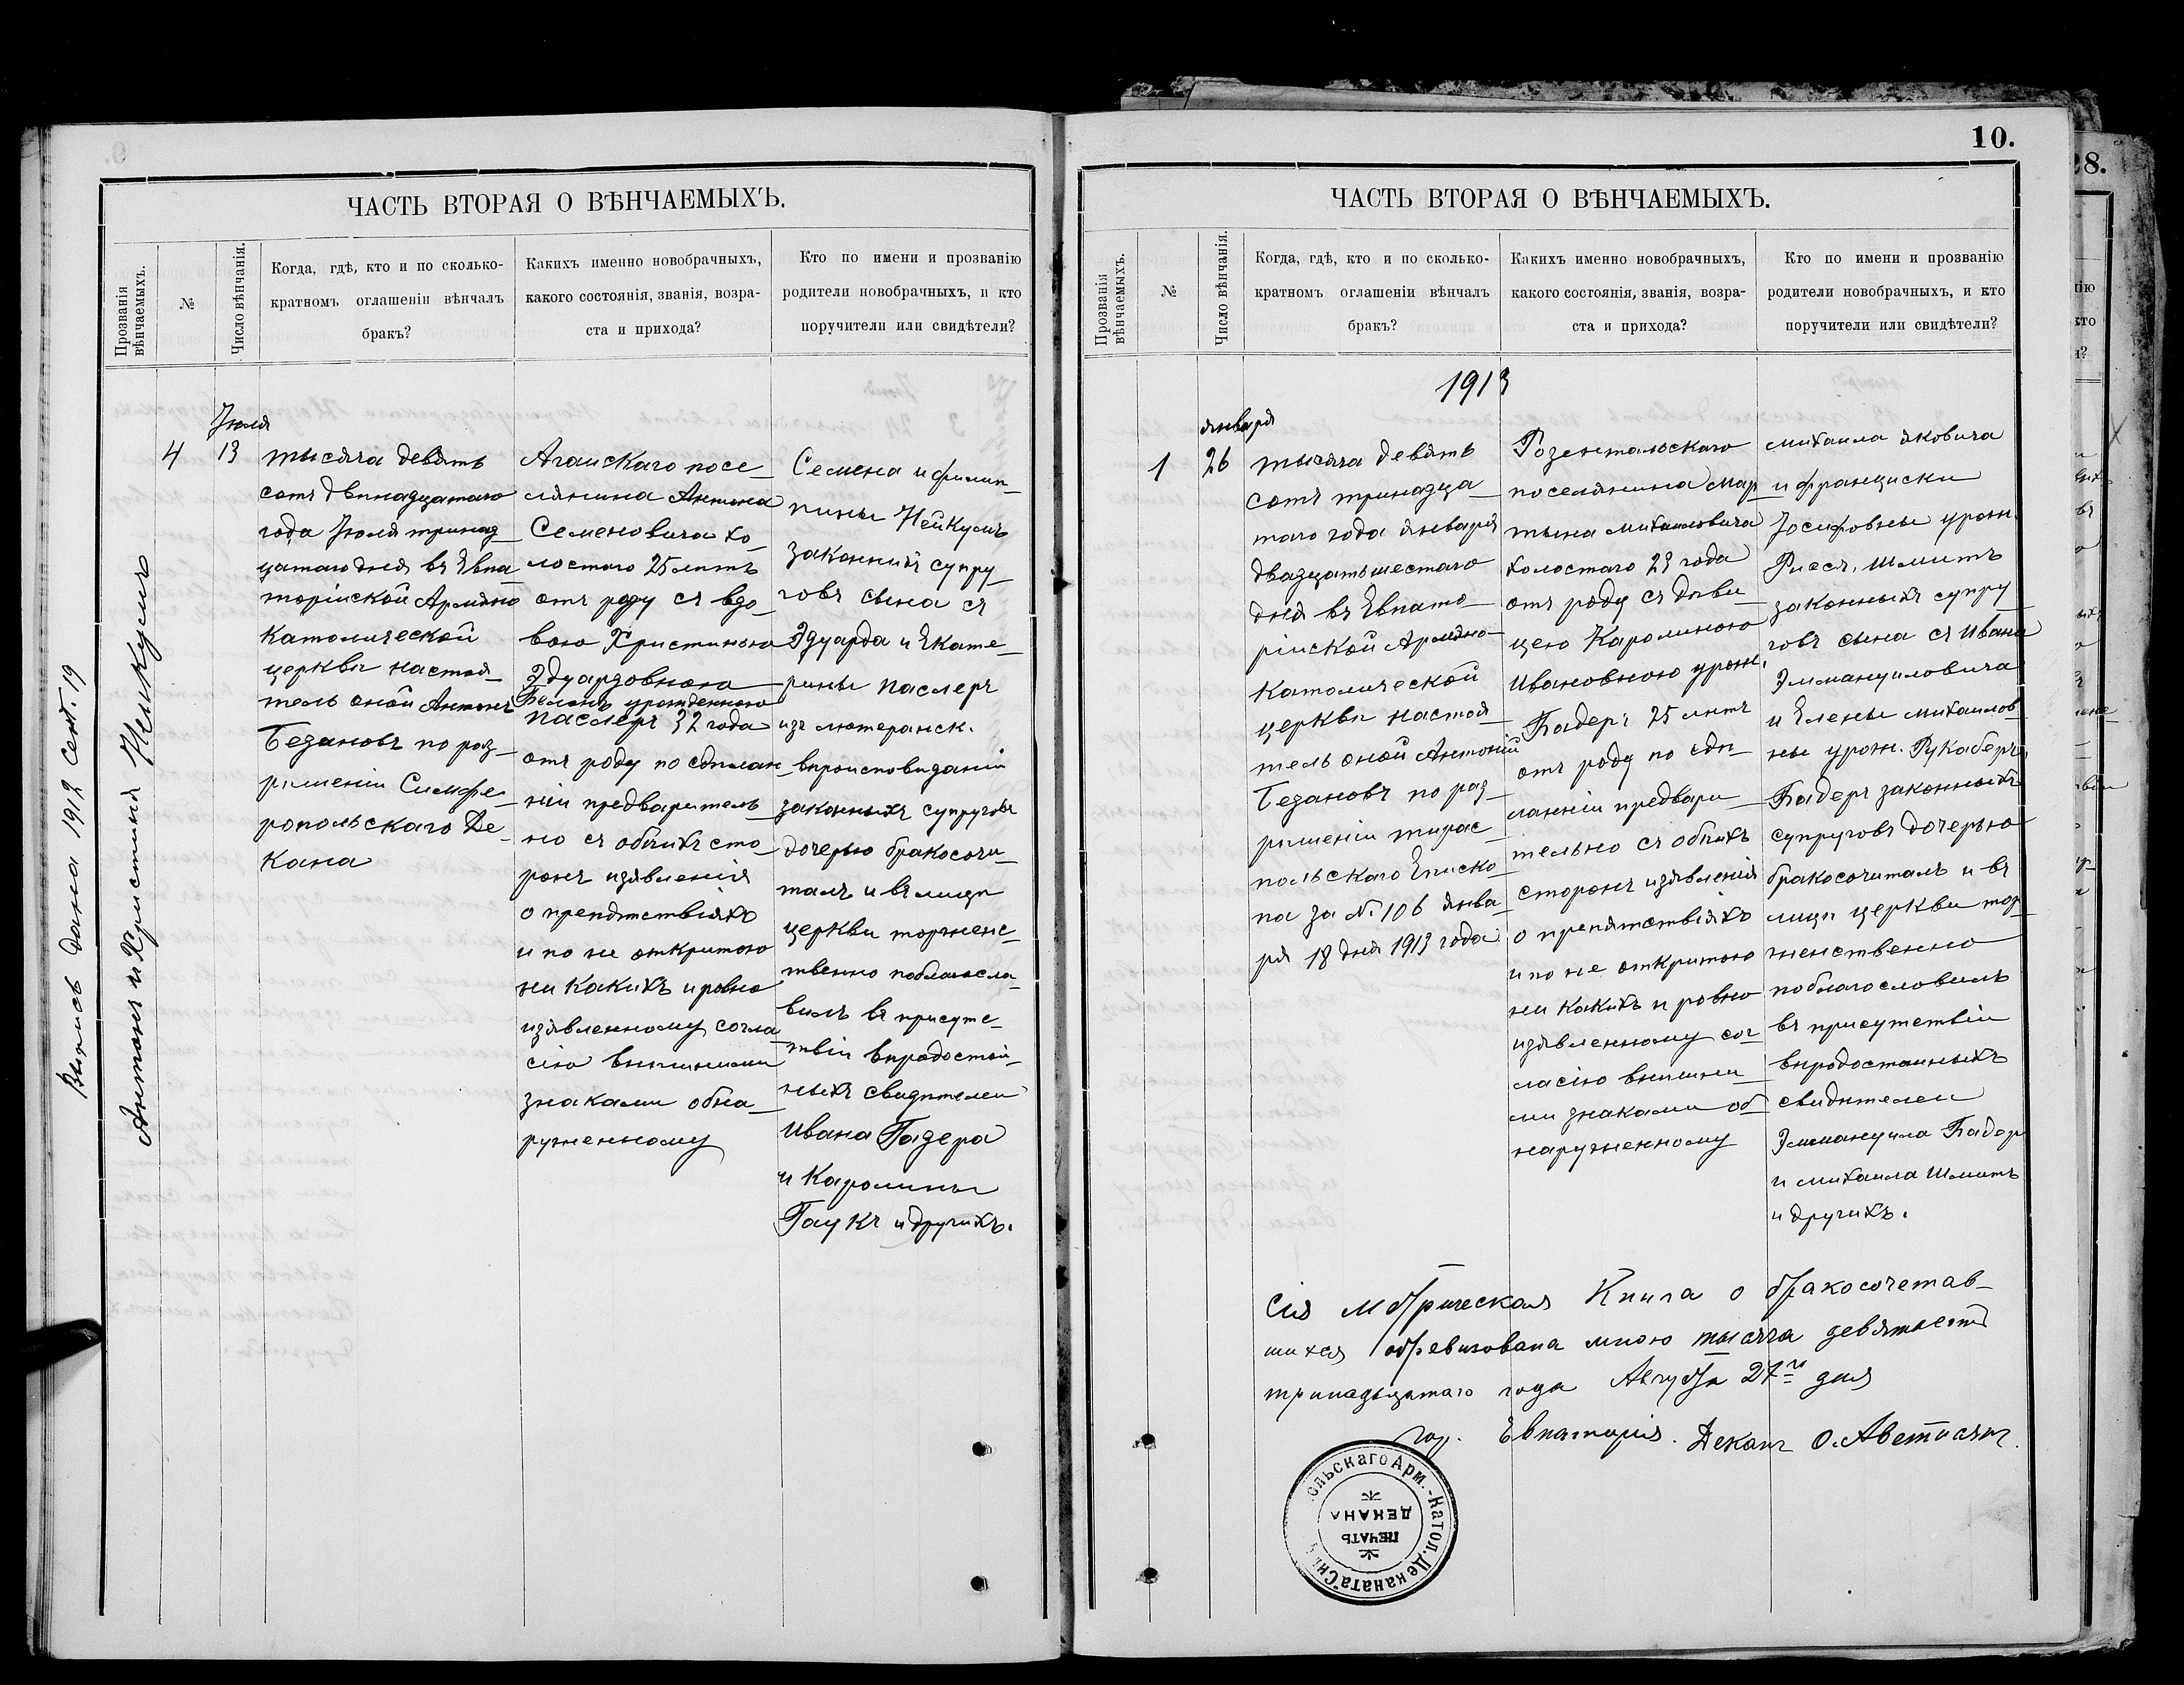 ЧАСТЬ ВТОРАЯ О ВѢНЧАЕМЫХЪ.
Прозванія вѣнчаемыхъ.
№
Число вѣнчанія.
Когда, гдѣ, кто и по сколько-
кратномъ оглашеніи вѣнчалъ
бракъ?
Какихъ именно новобрачныхъ,
какого состоянія, званія, возра-
ста и прихода?
Кто по имени и прозванію
родители новобрачныхъ, и кто
поручители или свидѣтели?
Выпись дана 1912 Сент. 19
Антонъ и Христина Нейкумъ
4
Іюля
13
тысяча девять
сотъ двѣнадцатаго
года Іюля тринад
цатаго дня въ Евпа
торійской Армяно
Католической
церкви настоя
тель оной Антонъ
Безановъ по раз
рѣшенію Симфе
ропольскаго Де
кана
Агайскаго посе
лянина Антона
Семеновича хо
лостаго 25 лѣтъ
отъ роду съ вдо
вою Христиною
Эдуардовною
урожденною
Паслеръ 32 года
отъ роду по сдѣлан
ніи предваритель
но съ обѣихъ сто
ронъ изявленія
о препятствіяхъ
и по не открытою
ни какихъ и ровно
изявленному согла
сію внѣшними
знаками обна
руженному
Семена и филип
пины Нейкумъ
законныхъ супру
говъ сына съ
Эдуарда и Екате
рины Паслеръ
изъ лютеранск.
вѣроисповѣданія
законныхъ супруговъ
дочерью бракосоче
талъ и въ лицѣ
церкви торженс
твенно поблагосло
вилъ въ присутс
твіи вѣродостой
ныхъ свидѣтелей
Ивана Гадера
и Каролины
Гаукъ и другихъ.
10.
ЧАСТЬ ВТОРАЯ О ВѢНЧАЕМЫХЪ.
Прозванія вѣнчаемыхъ.
№
Число вѣнчанія.
Когда, гдѣ, кто и по сколько-
кратномъ оглашеніи вѣнчалъ
бракъ?
Какихъ именно новобрачныхъ,
какого состоянія, званія, возра-
ста и прихода?
Кто по имени и прозванію
родители новобрачныхъ, и кто
поручители или свидѣтели?
1913
1
января
26
тысяча девять
сотъ тринадца
таго года января
двадцать шестаго
дня въ Евпато
рійской Армяно
Католической
церкви настоя
тель оной Антоній
Безановъ по раз
рѣшенію тирас
польскаго Еписко
па за № 106 янва
ря 18 дня 1913 года
Розентальскаго
поселянина Мар
тына Михаиловича
холостаго 23 года
отъ роду съ дѣви
цею Каролиною
Ивановною урож.
Бадеръ 25 лѣтъ
отъ роду по сдѣ
ланніи предвари
тельно съ обѣихъ
сторонъ изявленія
о препятствіяхъ
и по не открытою
ни какихъ и ровно
изявленному сог
ласію внѣшни
ми знаками об
наруженному
михаила яковича
и францыски
Іосифовны урож.
Рессъ, Шмитъ
законныхъ супру
говъ сына съ Ивана
Эммануиловича
и Елены михаилов
ны урож. Рукаберъ
Бадеръ законныхъ
супруговъ дочерью
бракосочиталъ и въ
лицѣ церкви тор
жественно
поблагословилъ
въ присутствіи
вѣродостаиныхъ
свидѣтелеи
Эммануила Бадер
и михаила Шмитъ
и другихъ.
Сія метрическая Книга о бракосочетав-
шихся обревизована мною тысяча девятьсотъ
тринадцатаго года Августа 27го дня
гор. Евпаторія. Деканъ О. Аветисянъ.
ольскаго Арм.-Катол. Деканата
ПЕЧАТЬ
ДЕКАНА
28.